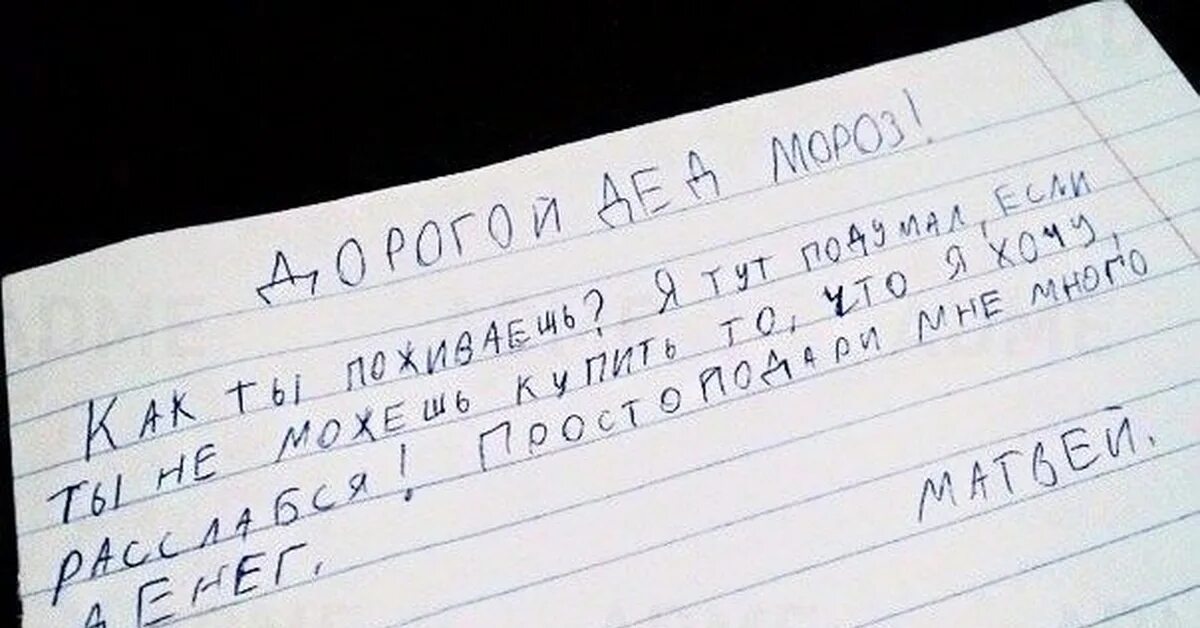 ДОРОГОЙ ДЕД МОРОЗ!
КАК ТЫ ПОЖИВАЕШЬ? Я ТУТ ПОДУМАЛ, ЕСЛИ
ТЫ НЕ МОЖЕШЬ КУПИТЬ ТО, ЧТО Я ХОЧУ,
РАССЛАБСЯ! ПРОСТО ПОДАРИ МНЕ МНОГО
ДЕНЕГ.
МАТВЕЙ.